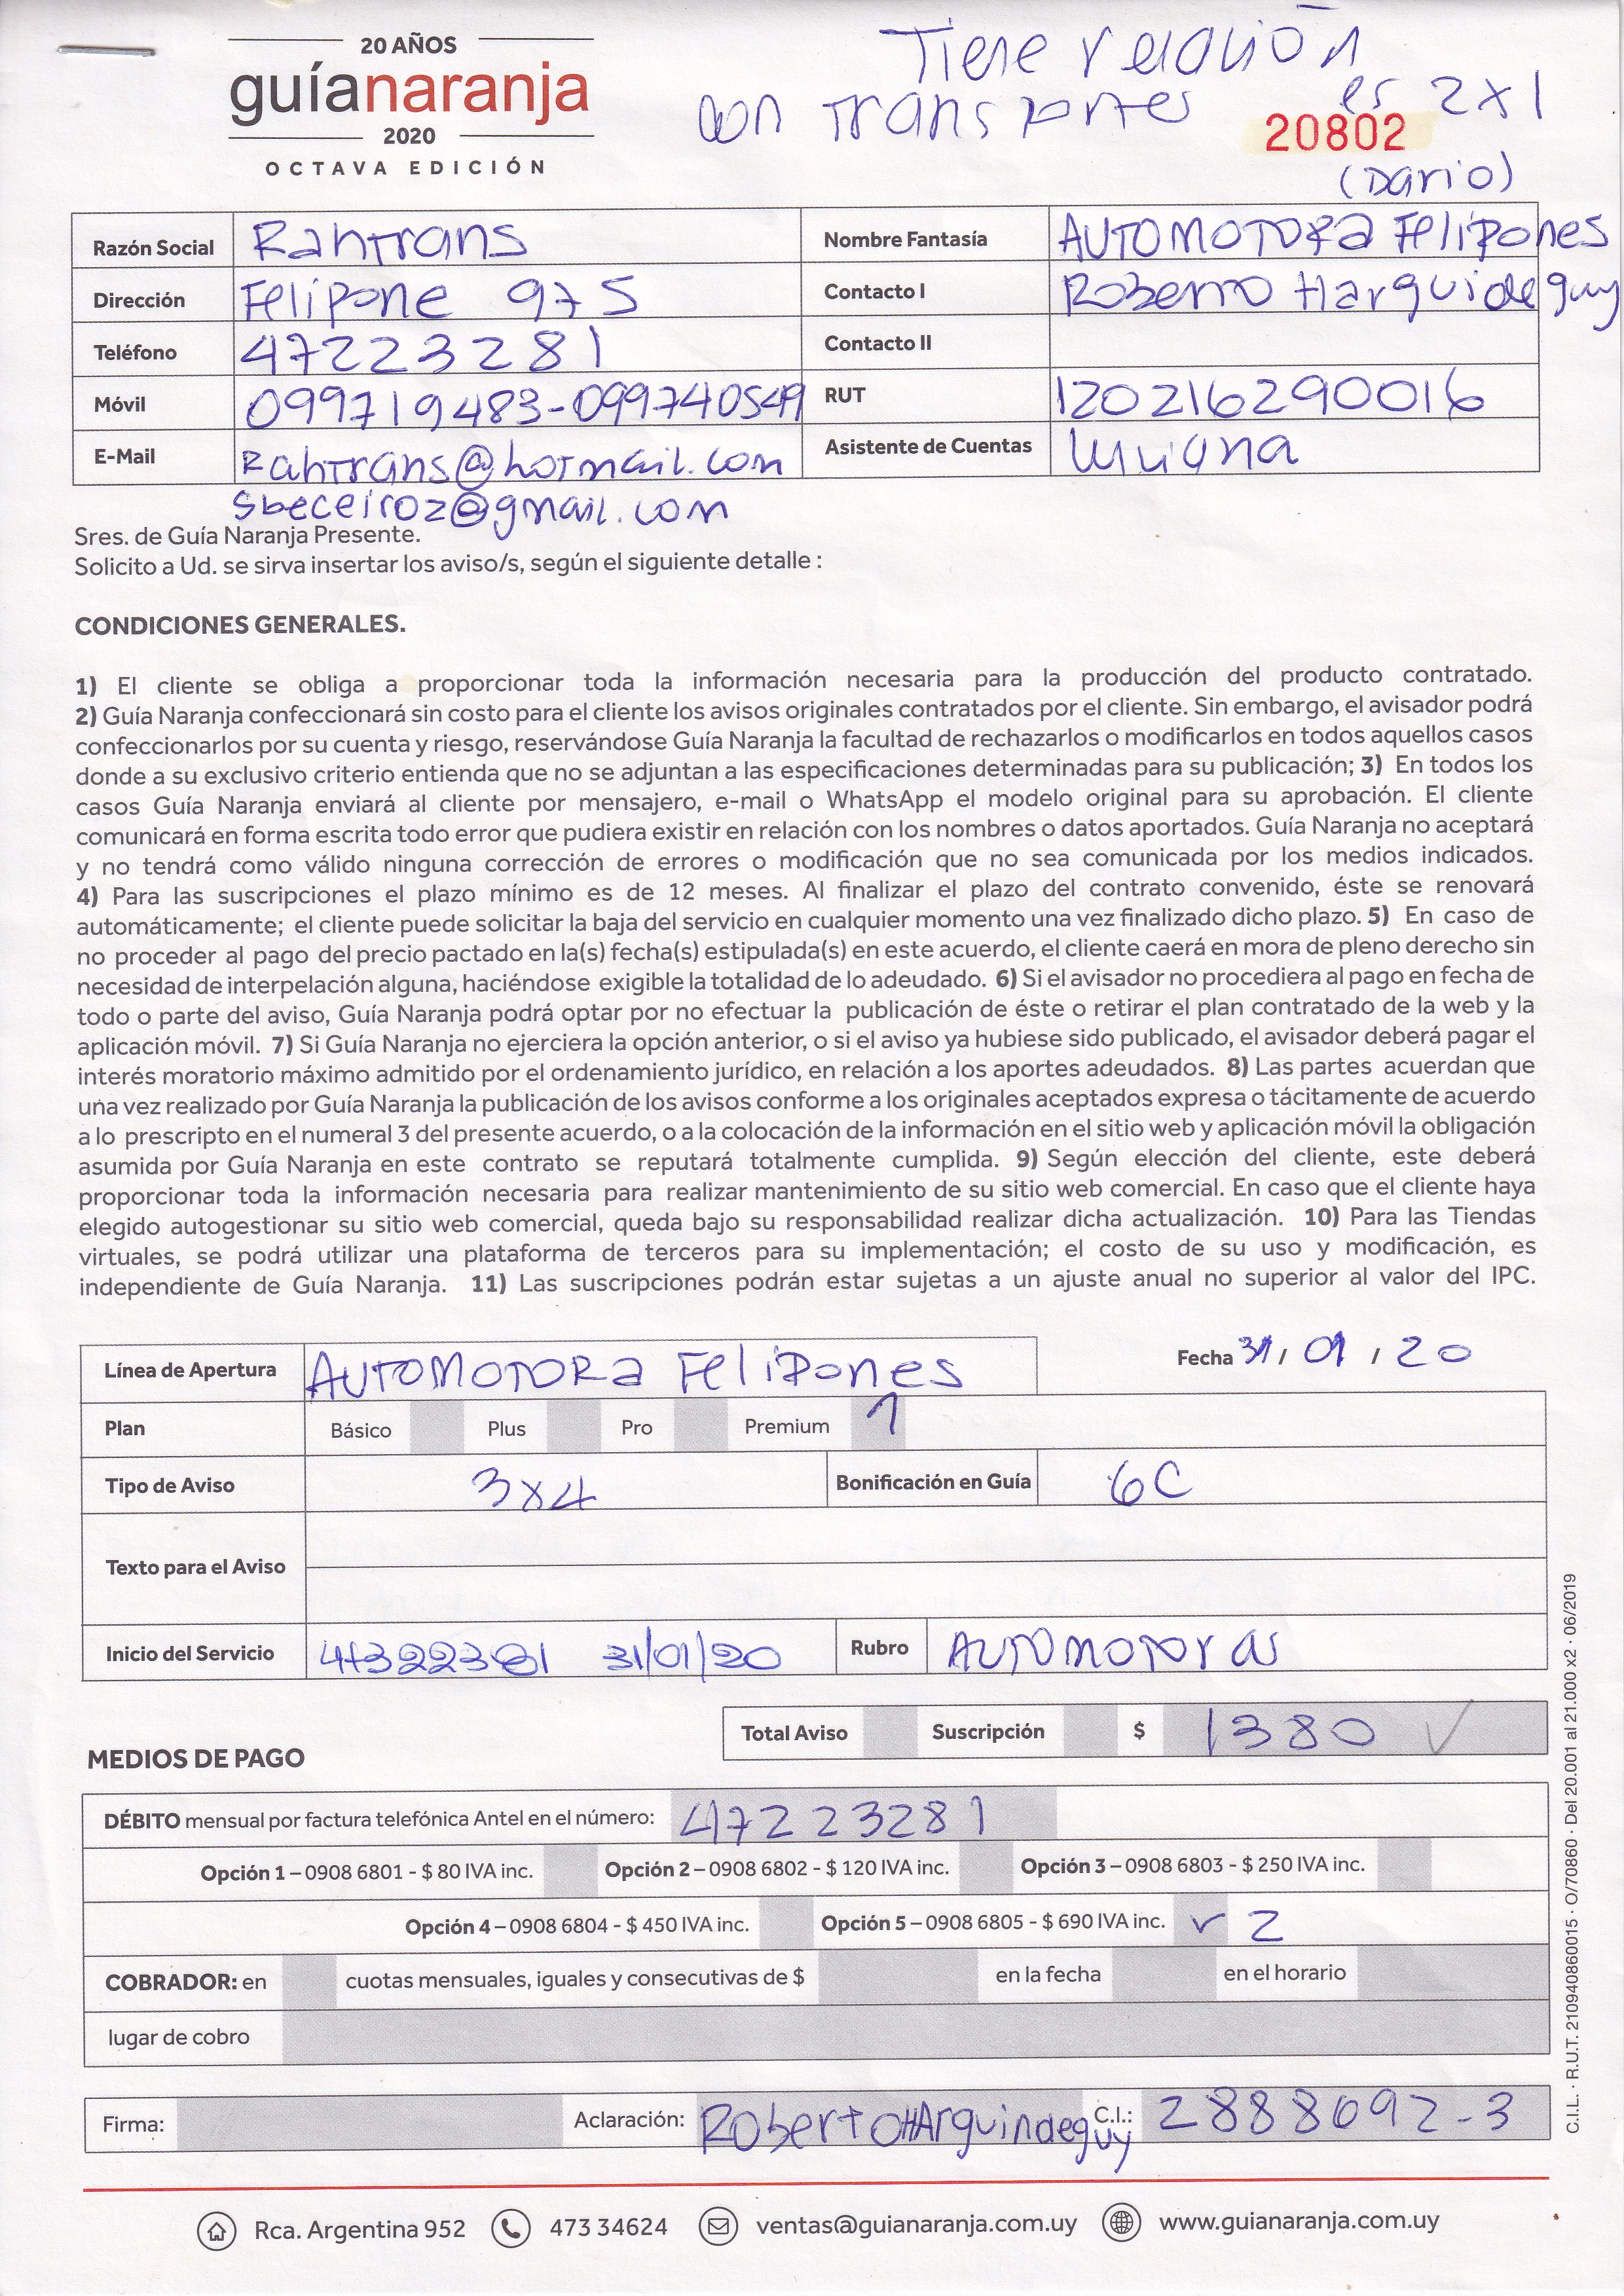 20 AÑOS
guíanaranja
2020
OCTAVA EDICIÓN
Tiene relación
con transportes es 2x1
20802
(Dario)
Razón Social Rahtrans Nombre Fantasía AUTOMOTORA Felipones
Dirección Felipone 975 Contacto I Roberto Harguideguy
Teléfono 47223281 Contacto II
Móvil 099719483-099740549 RUT 120216290016
E-Mail Rahtrans@hotmail.com Asistente de Cuentas
sbeceiroz@gmail.com
Sres. de Guía Naranja Presente.
Solicito a Ud. se sirva insertar los aviso/s, según el siguiente detalle :
CONDICIONES GENERALES.
1) El cliente se obliga a proporcionar toda la información necesaria para la producción del producto contratado.
2) Guía Naranja confeccionará sin costo para el cliente los avisos originales contratados por el cliente. Sin embargo, el avisador podrá
confeccionarlos por su cuenta y riesgo, reservándose Guía Naranja la facultad de rechazarlos o modificarlos en todos aquellos casos
donde a su exclusivo criterio entienda que no se adjuntan a las especificaciones determinadas para su publicación; 3) En todos los
casos Guía Naranja enviará al cliente por mensajero, e-mail o WhatsApp el modelo original para su aprobación. El cliente
comunicará en forma escrita todo error que pudiera existir en relación con los nombres o datos aportados. Guía Naranja no aceptará
y no tendrá como válido ninguna corrección de errores o modificación que no sea comunicada por los medios indicados.
4) Para las suscripciones el plazo mínimo es de 12 meses. Al finalizar el plazo del contrato convenido, éste se renovará
automáticamente; el cliente puede solicitar la baja del servicio en cualquier momento una vez finalizado dicho plazo. 5) En caso de
no proceder al pago del precio pactado en la(s) fecha(s) estipulada(s) en este acuerdo, el cliente caerá en mora de pleno derecho sin
necesidad de interpelación alguna, haciéndose exigible la totalidad de lo adeudado. 6) Si el avisador no procediera al pago en fecha de
todo o parte del aviso, Guía Naranja podrá optar por no efectuar la publicación de éste o retirar el plan contratado de la web y la
aplicación móvil. 7) Si Guía Naranja no ejerciera la opción anterior, o si el aviso ya hubiese sido publicado, el avisador deberá pagar el
interés moratorio máximo admitido por el ordenamiento jurídico, en relación a los aportes adeudados. 8) Las partes acuerdan que
una vez realizado por Guía Naranja la publicación de los avisos conforme a los originales aceptados expresa o tácitamente de acuerdo
a lo prescripto en el numeral 3 del presente acuerdo, o a la colocación de la información en el sitio web y aplicación móvil la obligación
asumida por Guía Naranja en este contrato se reputará totalmente cumplida. 9) Según elección del cliente, este deberá
proporcionar toda la información necesaria para realizar mantenimiento de su sitio web comercial. En caso que el cliente haya
elegido autogestionar su sitio web comercial, queda bajo su responsabilidad realizar dicha actualización. 10) Para las Tiendas
virtuales, se podrá utilizar una plataforma de terceros para su implementación; el costo de su uso y modificación, es
independiente de Guía Naranja. 11) Las suscripciones podrán estar sujetas a un ajuste anual no superior al valor del IPC.
Línea de Apertura AUTOMOTORA Felipones Fecha 31/ 01 / 20
Plan Básico Plus Pro Premium 1
Tipo de Aviso 3x4 Bonificación en Guía 6C
Texto para el Aviso
Inicio del Servicio 31/01/20 Rubro AUTOMOTORAS
Total Aviso Suscripción $ 1380 ✓
MEDIOS DE PAGO
DÉBITO mensual por factura telefónica Antel en el número: 47223281
Opción 1 – 0908 6801 - $ 80 IVA inc. Opción 2 – 0908 6802 - $ 120 IVA inc. Opción 3 – 0908 6803 - $ 250 IVA inc.
Opción 4 – 0908 6804 - $ 450 IVA inc. Opción 5 – 0908 6805 - $ 690 IVA inc. ✓ 2
COBRADOR: en cuotas mensuales, iguales y consecutivas de $ en la fecha en el horario
lugar de cobro
Firma: Aclaración: Roberto HArguindeguy C.I.: 2888692-3
Rca. Argentina 952 473 34624 ventas@guianaranja.com.uy www.guianaranja.com.uy
C.I.L. · R.U.T. 210940860015 · O/70860 · Del 20.001 al 21.000 x2 · 06/2019